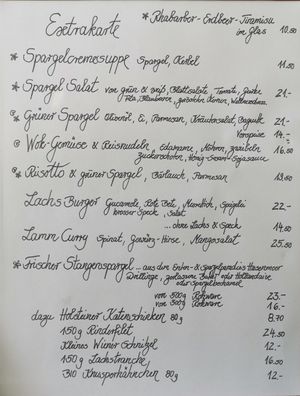 Extrakarte
* Rhabarber-Erdbeer-Tiramisu
im Glas 10.50
* Spargelcremesuppe Spargel, Kerbel 11.50
* Spargel Salat von grün & weiß, Blattsalate, Tomate, Gurke 21.-
Feta, Blaubeeren, Walnüsse
Grüner Spargel Olivenöl, Ei, Parmesan, Kräutersalat, Baguette 21.-
Vorspeise 14.-
Wok-Gemüse & Reisnudeln, Edamame, Möhren, 16.50
Zuckerschoten, Honig-Sesam-Sojasauce
Risotto & grüner Spargel, Bärlauch, Parmesan 19.50
Lachs Burger Guacamole, Rote Bete, Meerrettich, Spiegelei 22.-
Speck, Salat
... ohne Lachs & Speck 14.50
Lamm Curry Spinat, Gewürz-Hirse, Mangosalat 25.50
* Frischer Stangenspargel ... aus dem
Drillinge, zerlassene Butter oder Hollandaise
oder Spargelbechamel
von 500g Rohware 23.-
von 300g Rohware 16.-
dazu Holsteiner Katenschinken 80g 8.70
150g Rinderfilet 24.50
Kleines Wiener Schnitzel 12.-
150g Lachstranche 16.50
BIO Knusperhähnchen 80g 12.-